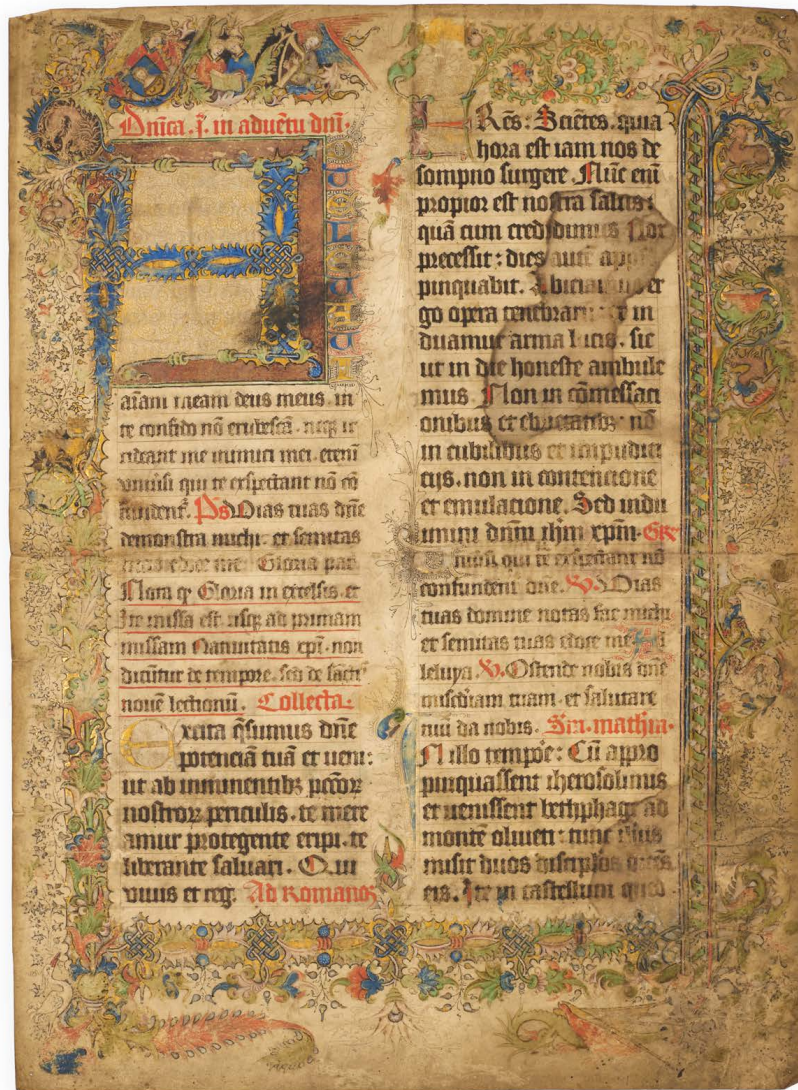 Dn̄ica .i. in aduētu dn̄i.
aīam meam deus meus. in
te confido nō erubescā. neqȝ ir
rideant me inimici mei. etenī
vniūsi qui te exspectant nō cō
fundentˀ. Ps Uias tuas dn̄e
demonstra michi. et semitas
Gloria pat
Gloria in excelsis. et
Ite missa est. usqȝ ad primam
missam Natiuitatis xp̄i. non
dicūtur de tempore. sed de sāctis
nouē lectionū. Collecta.
Excita q̄sumus dn̄e
potenciā tuā et ueni:
ut ab imminentibȝ pccōꝝ
nostroꝝ periculis. te mere
amur protegente eripi. te
liberante saluari. Q.ui
viuis et reg. Ad Romanos
FRēs: Scietes. quia
hora est iam nos de
sompno surgere. Nūc em̄
propior est nostra salus:
quā cum credidimus Nox
precessit: dies autē appro
pinquabit. Abiciamus er
go opera tenebraruȝ et in
duamur arma lucis. sic
ut in die honeste ambule
mus. Non in cōmessaci
onibus et ebrietatibȝ. nō
in cubilibus et impudici
cijs. non in contencione
et emulacione. Sed indu
imini dn̄m ih̄m xp̄m. Gre
niūsi. qui te exspectant nō
confundent̄ dn̄e. V. Uias
tuas domine notas fac michi
et semitas tuas edoce me Al
leluya. V. Ostende nobis dn̄e
misc̄diam tuam. et salutare
tuū da nobis. Scd̄. mathm̄.
IN illo tempoꝛe: Cū appro
pinquassent iherosolimis
et uenissent bethphage ad
montē oliueti: tunc ih̄us
misit duos discip̄los dicēs
eis. Ite in castellum quod